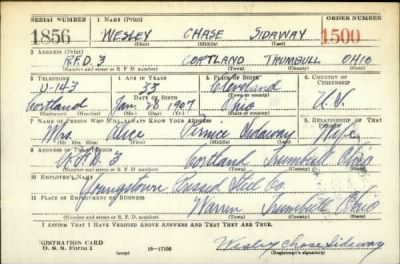 SERIAL NUMBER 1. NAME (Print) ORDER NUMBER
1856 WESLEY CHASE SIDAWAY 1500
(First) (Middle) (Last)
2. ADDRESS (Print)
R.F.D. 3 CORTLAND TRUMBULL OHIO
(Number and street or R. F. D. number) (Town) (County) (State)
3. TELEPHONE 4. AGE IN YEARS 5. PLACE OF BIRTH 6. COUNTRY OF CITIZENSHIP
U-143 33 Cleveland
DATE OF BIRTH
Cortland Jan. 28 1907 Ohio U.S.
(Exchange) (Mo.) (Day) (Yr.) (State or country)
7. NAME OF PERSON WHO WILL ALWAYS KNOW YOUR ADDRESS 8. RELATIONSHIP OF THAT PERSON
Mrs. Alice Sidaway Wife
(Mr., Mrs., Miss) (First) (Middle) (Last)
9. ADDRESS OF THAT PERSON
R.F.D. 3 Cortland Trumbull Ohio
(Number and street or R. F. D. number) (Town) (County) (State)
10. EMPLOYER'S NAME
Youngstown Pressed Steel Co.
11. PLACE OF EMPLOYMENT OR BUSINESS
Warren Trumbull Ohio
(Number and street or R. F. D. number) (Town) (County) (State)
I AFFIRM THAT I HAVE VERIFIED ABOVE ANSWERS AND THAT THEY ARE TRUE.
REGISTRATION CARD
D. S. S. FORM 1 16-17105 Wesley Chase Sidaway
(Registrant's signature)